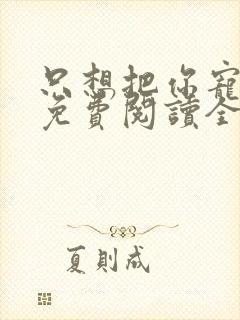 只想把你寵
免費閱讀全
夏則成